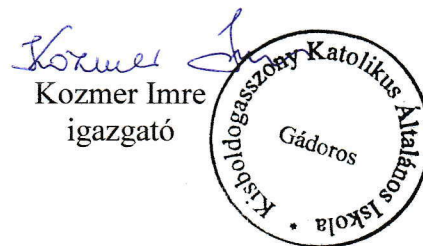 Kozmer Imre
Kozmer Imre
igazgató
Kisboldogasszony Katolikus Általános Iskola *
Gádoros